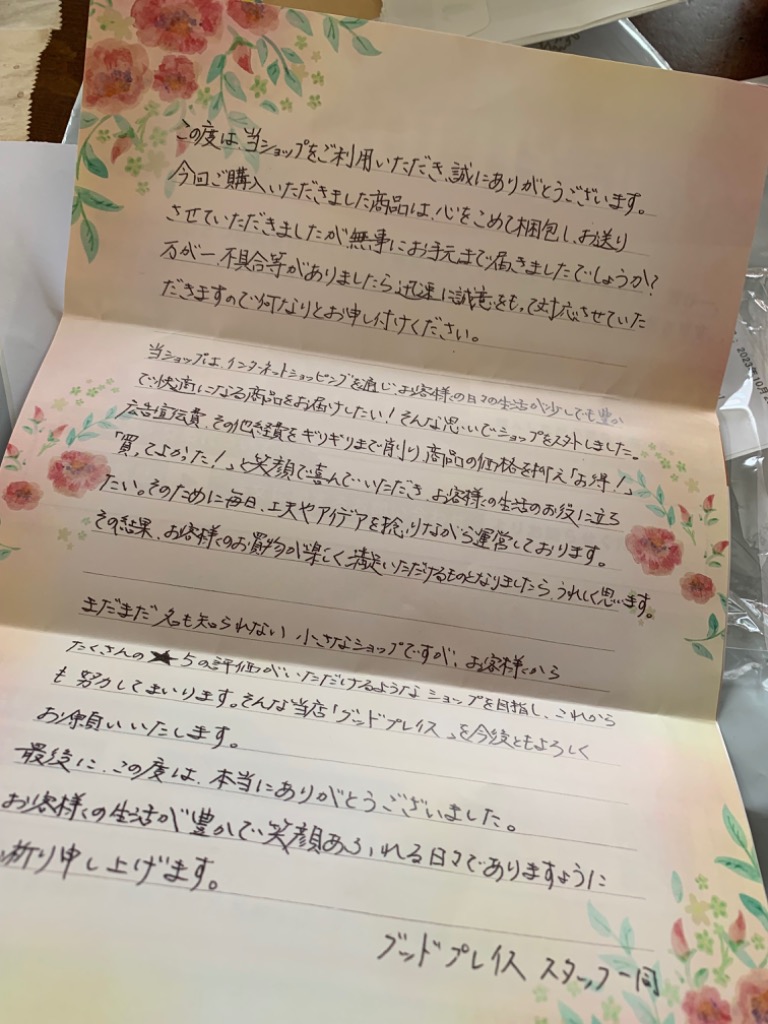 この度は、当ショップをご利用いただき、誠にありがとうございます。
今回ご購入いただきました商品は、心をこめて梱包し、お送り
させていただきましたが無事にお手元まで届きましたでしょうか?
万が一、不具合等がありましたら迅速に誠意をもって対応させていた
だきますので何なりとお申し付けください。
当ショップは、インターネットショッピングを通じ、お客様の日々の生活が少しでも豊か
で快適になる商品をお届けしたい!そんな思いでショップをスタートしました。
広告宣伝費、その他経費をギリギリまで削り、商品の価格を抑え「お得!」
「買ってよかった!」と笑顔で喜んでいただき、お客様の生活のお役に立ち
たい。そのために毎日、工夫やアイデアを捻りながら運営しております。
その結果、お客様のお買物が楽しく満足いただけるものとなりましたら、うれしく思います。
まだまだ名も知られない小さなショップですが、お客様から
たくさんの★5の評価がいただけるようなショップを目指し、これから
も努力してまいります。そんな当店「グッドプレイス」を今後ともよろしく
お願いいたします。
最後に、この度は、本当にありがとうございました。
お客様の生活が豊かで笑顔あふれる日々でありますように
祈り申し上げます。
グッドプレイス スタッフ一同
2023年10月